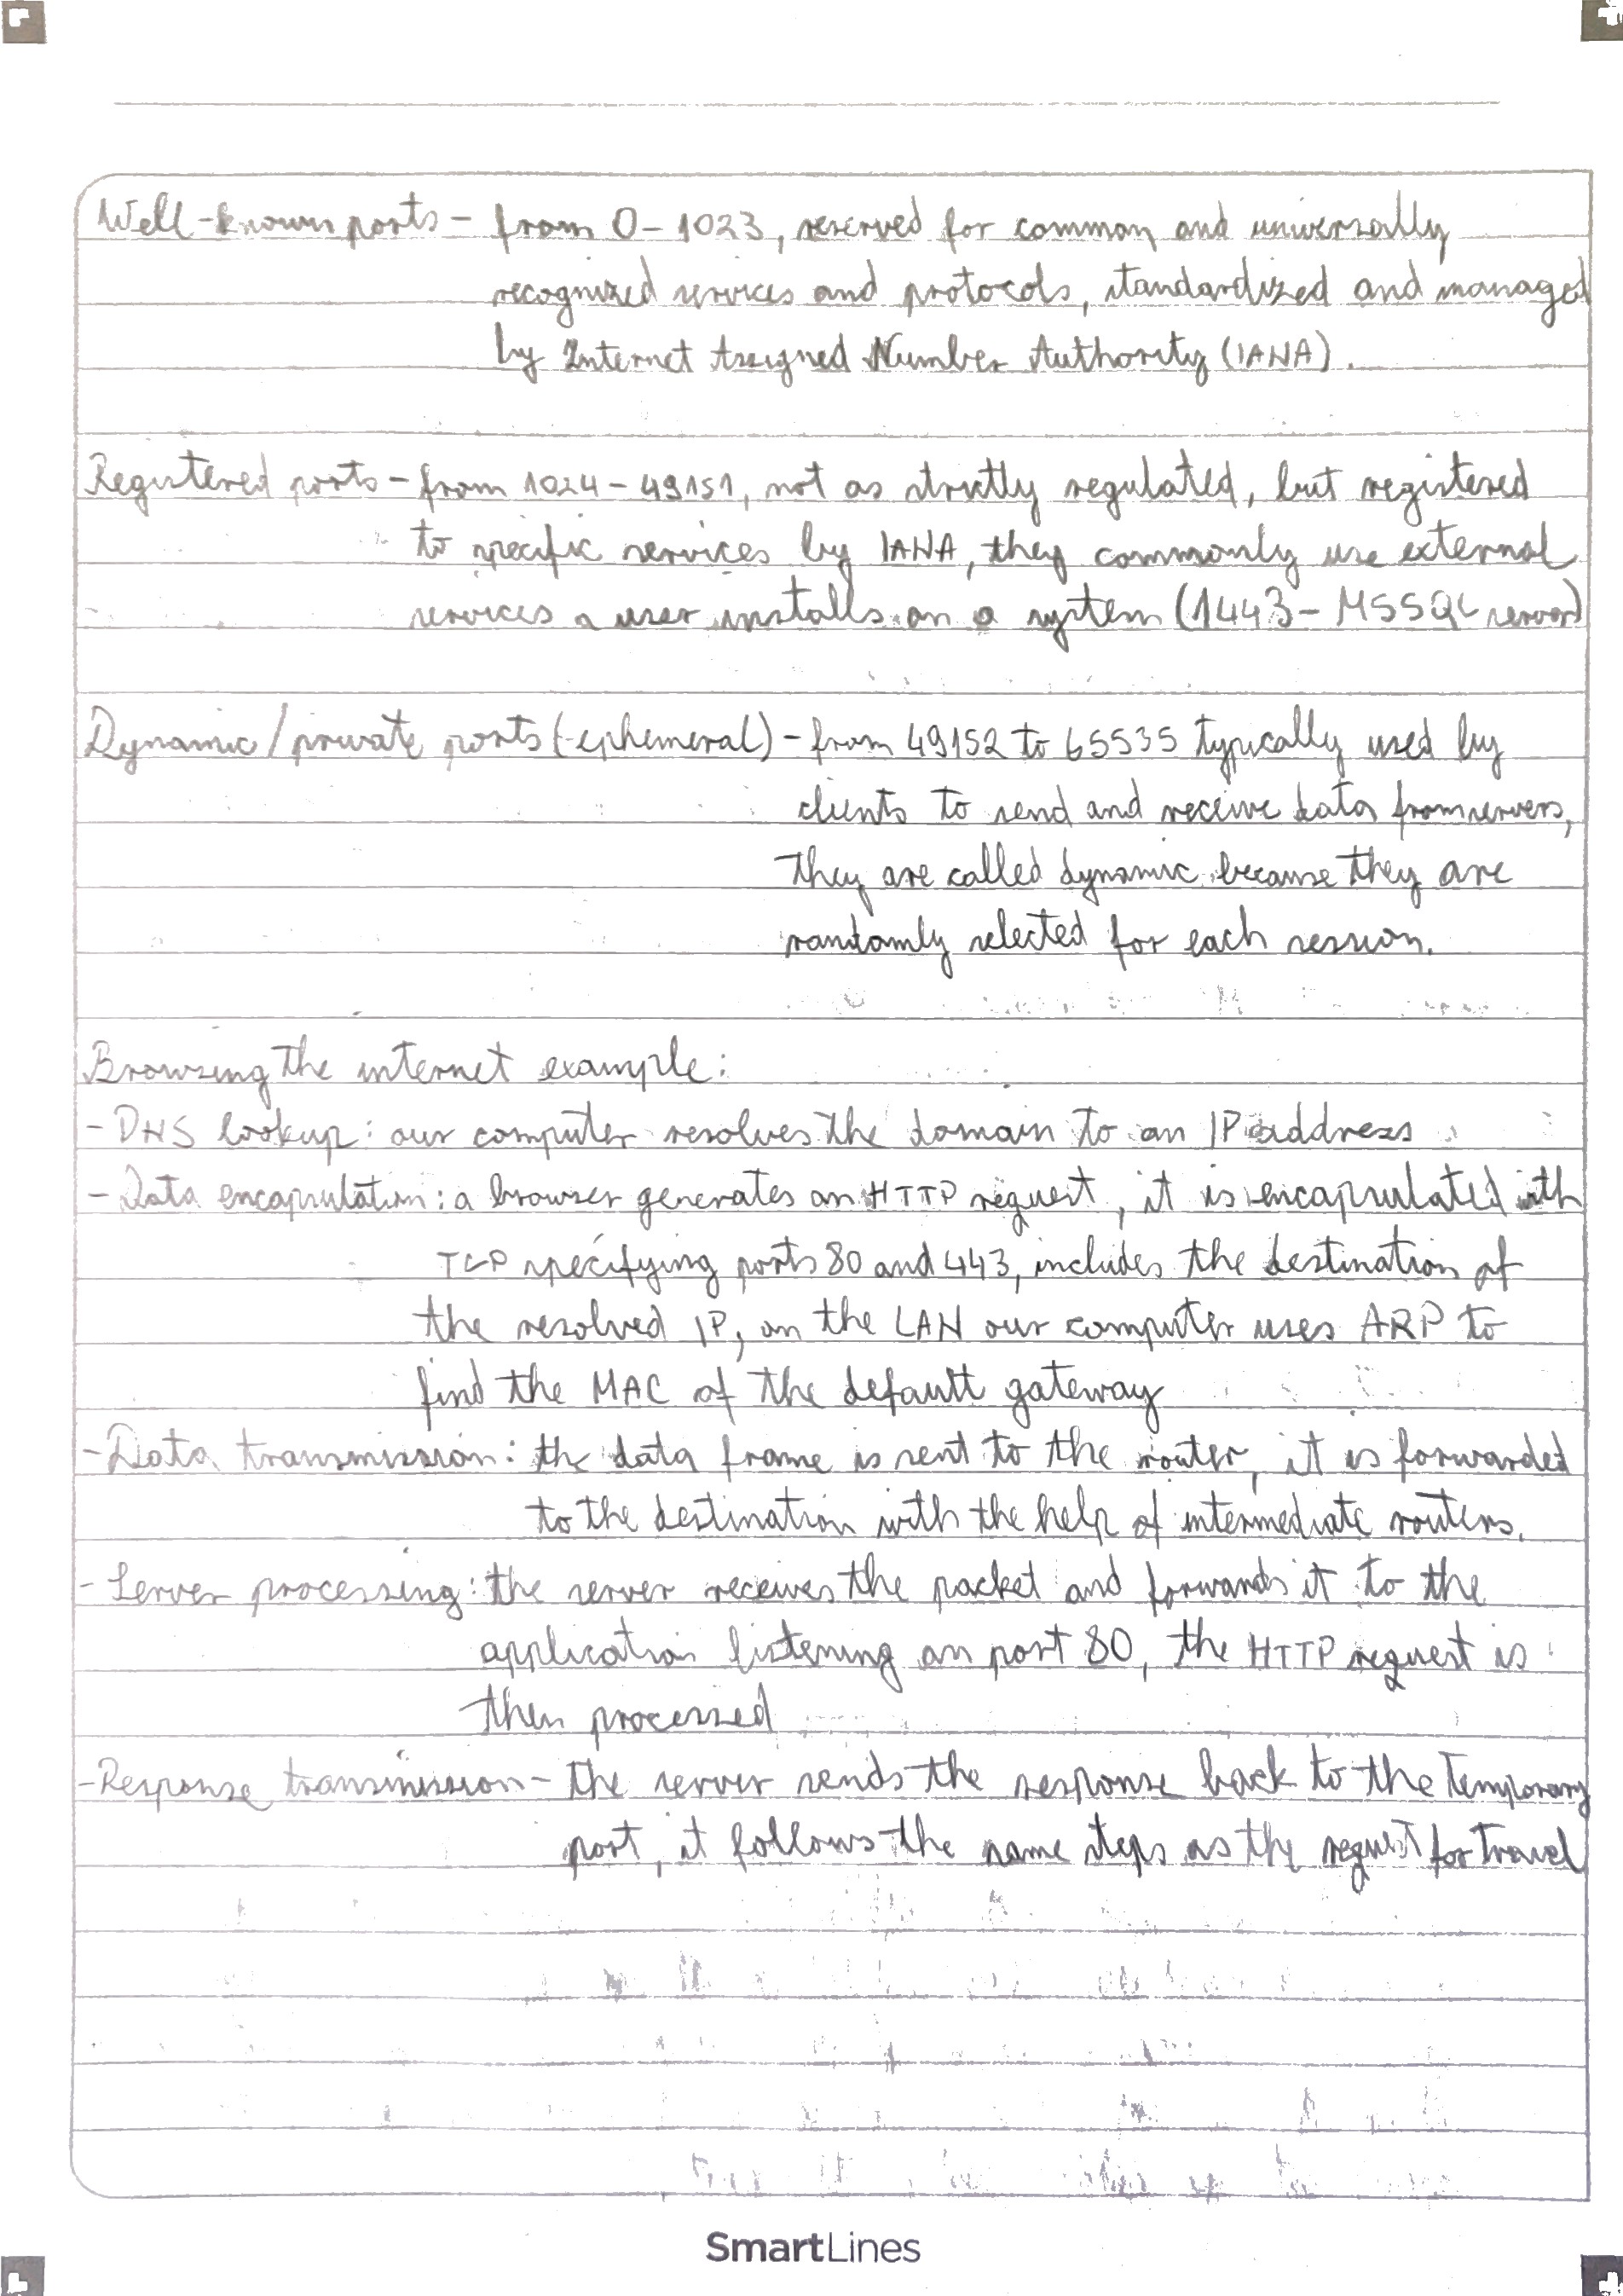 Well-known ports - from 0-1023, reserved for common and universally
recognized services and protocols, standardized and managed
by Internet Assigned Number Authority (IANA).
Registered ports - from 1024-49151, not as strictly regulated, but registered
to specific services by IANA, they commonly use external
services a user installs on a system (1443- MSSQL server)
Dynamic/private ports (ephemeral) - from 49152 to 65535 typically used by
clients to send and receive data from servers,
they are called dynamic because they are
randomly selected for each session.
Browsing the internet example:
- DNS lookup: our computer resolves the domain to an IP address
- Data encapsulation: a browser generates an HTTP request, it is encapsulated with
TCP specifying ports 80 and 443, includes the destination of
the resolved IP, on the LAN our computer uses ARP to
find the MAC of the default gateway
- Data transmission: the data frame is sent to the router, it is forwarded
to the destination with the help of intermediate routers.
- Server processing: the server receives the packet and forwards it to the
application listening on port 80, the HTTP request is
then processed
- Response transmission - the server sends the response back to the temporary
port, it follows the same steps as the request for travel
SmartLines